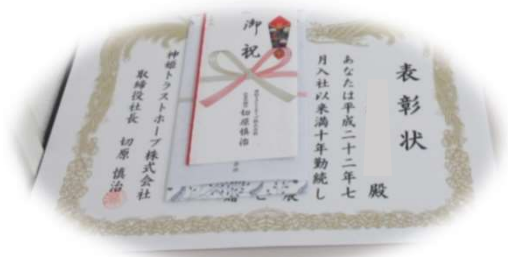 表彰状
殿
あなたは平成二十二年七
月入社以来満十年勤続し
御祝
切原慎治
神姫トラストホープ株式会社
取締役社長 切原 慎治